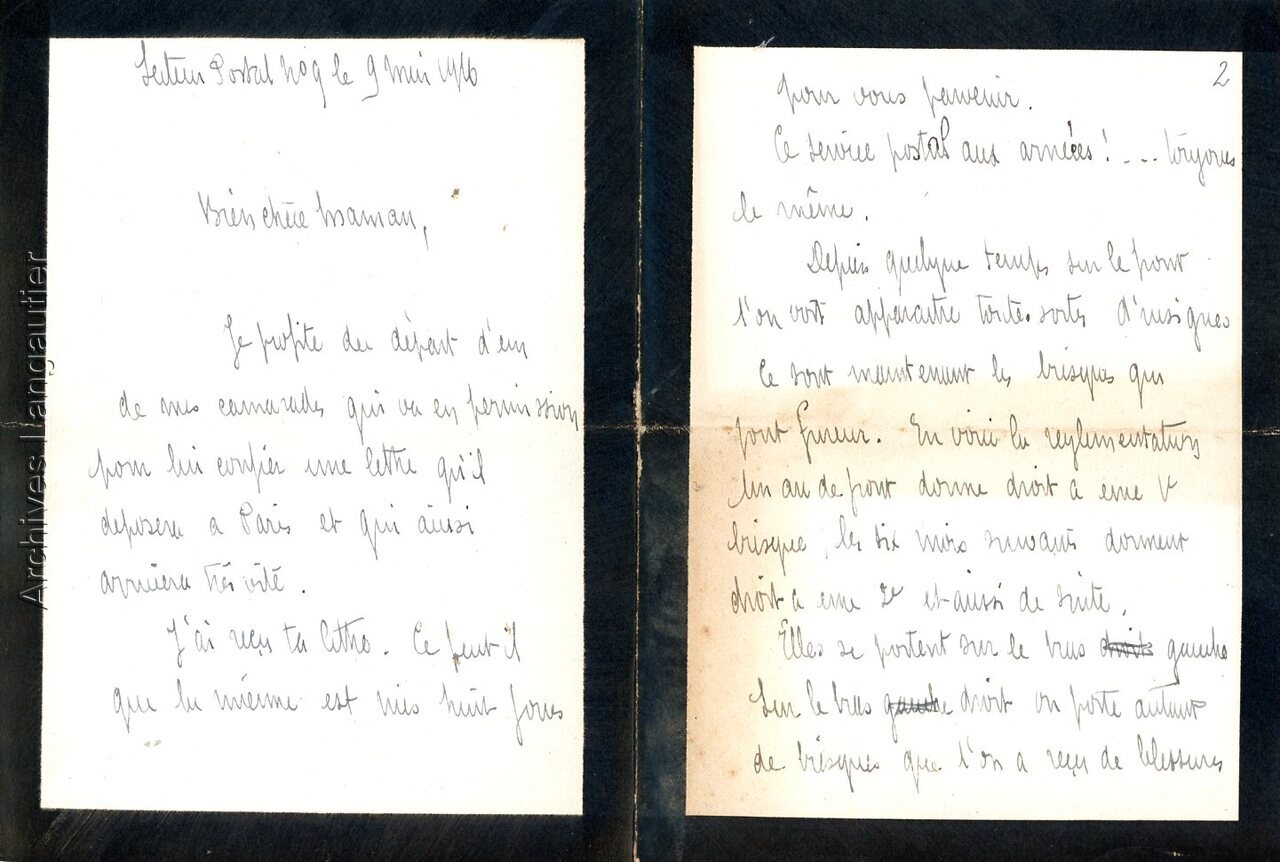 Secteur Postal No 9 le 9 mai 1916
Bien chère Maman,
Je profite du départ d'un
de mes camarades qui va en permission
pour lui confier une lettre qu'il
deposera a Paris et qui aussi
arrivera très vite.
J'ai reçu ta lettre. Ce peut il
que la mienne est mis huit jours
2
pour vous parvenir.
Ce service postal aux armées! - - - toujours
le même.
Depuis quelque temps sur le front
l'on voit apparaitre toutes sortes d'insignes
Ce sont maintenant les brisques qui
font fureur. En voici la reglementation
Un an de front donne droit a une
brisque, les six mois suivants donnent
droit a une 2e et aussi de suite.
Elles se portent sur le bras droit gauche
Sur le bras gauche droit on porte autant
de brisques que l'on a reçu de blessures
Archives Langautier